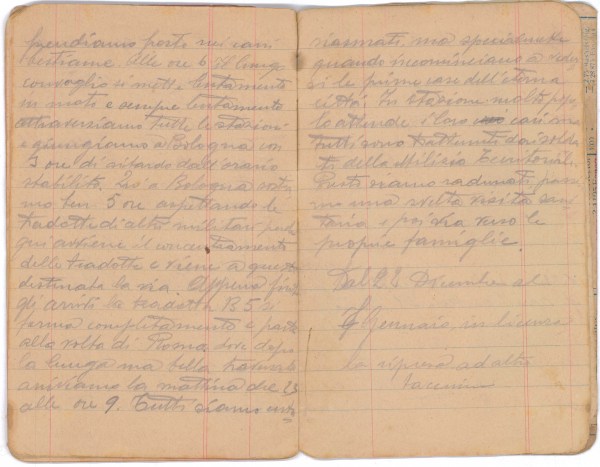 prendiamo posto nei vari
bestiame. Alle ore 6 il lungo
convoglio si mette lentamente
in moto e sempre lentamente
attraversiamo tutte le stazioni
e giungiamo a Bologna con
3 ore di ritardo dall'orario
stabilito. Qui a Bologna sosti
mo ben 5 ore aspettando le
tradotte di altri militari perchè
qui avviene il concentramento
delle tradotte e viene a questa
destinata la via. Appena
gli arrivi la tradotta B5 si
forma completamente e parte
alla volta di Roma dove dopo
la lunga ma bella traversata
arriviamo la mattina del 23
alle ore 9. Tutti siamo
ma specialmente
quando incominciano a veder
si le prime case dell'eterna
città. In stazione molto popo
lo attende i loro cari ma
tutti sono trattenuti dai solda
ti della Milizia Territoriale.
Quivi siamo radunati passia
mo una svelta visita sani
taria e poi via verso le
proprie famiglie.
Dal 23 Dicembre al
Gennaio in licenza
la ripresa ad altro
taccuino